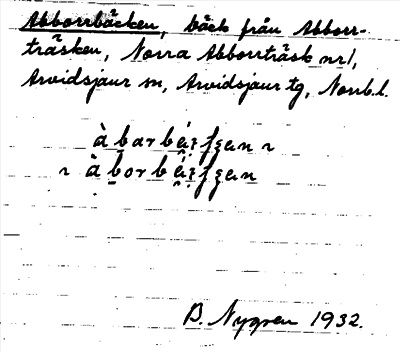 Abborrbäcken, bäck från Abborr-
träsken, Norra Abborrträsk nr 1,
Arvidsjaur sn, Arvidsjaur tg, Norrb.l.
B. Nygren 1932.